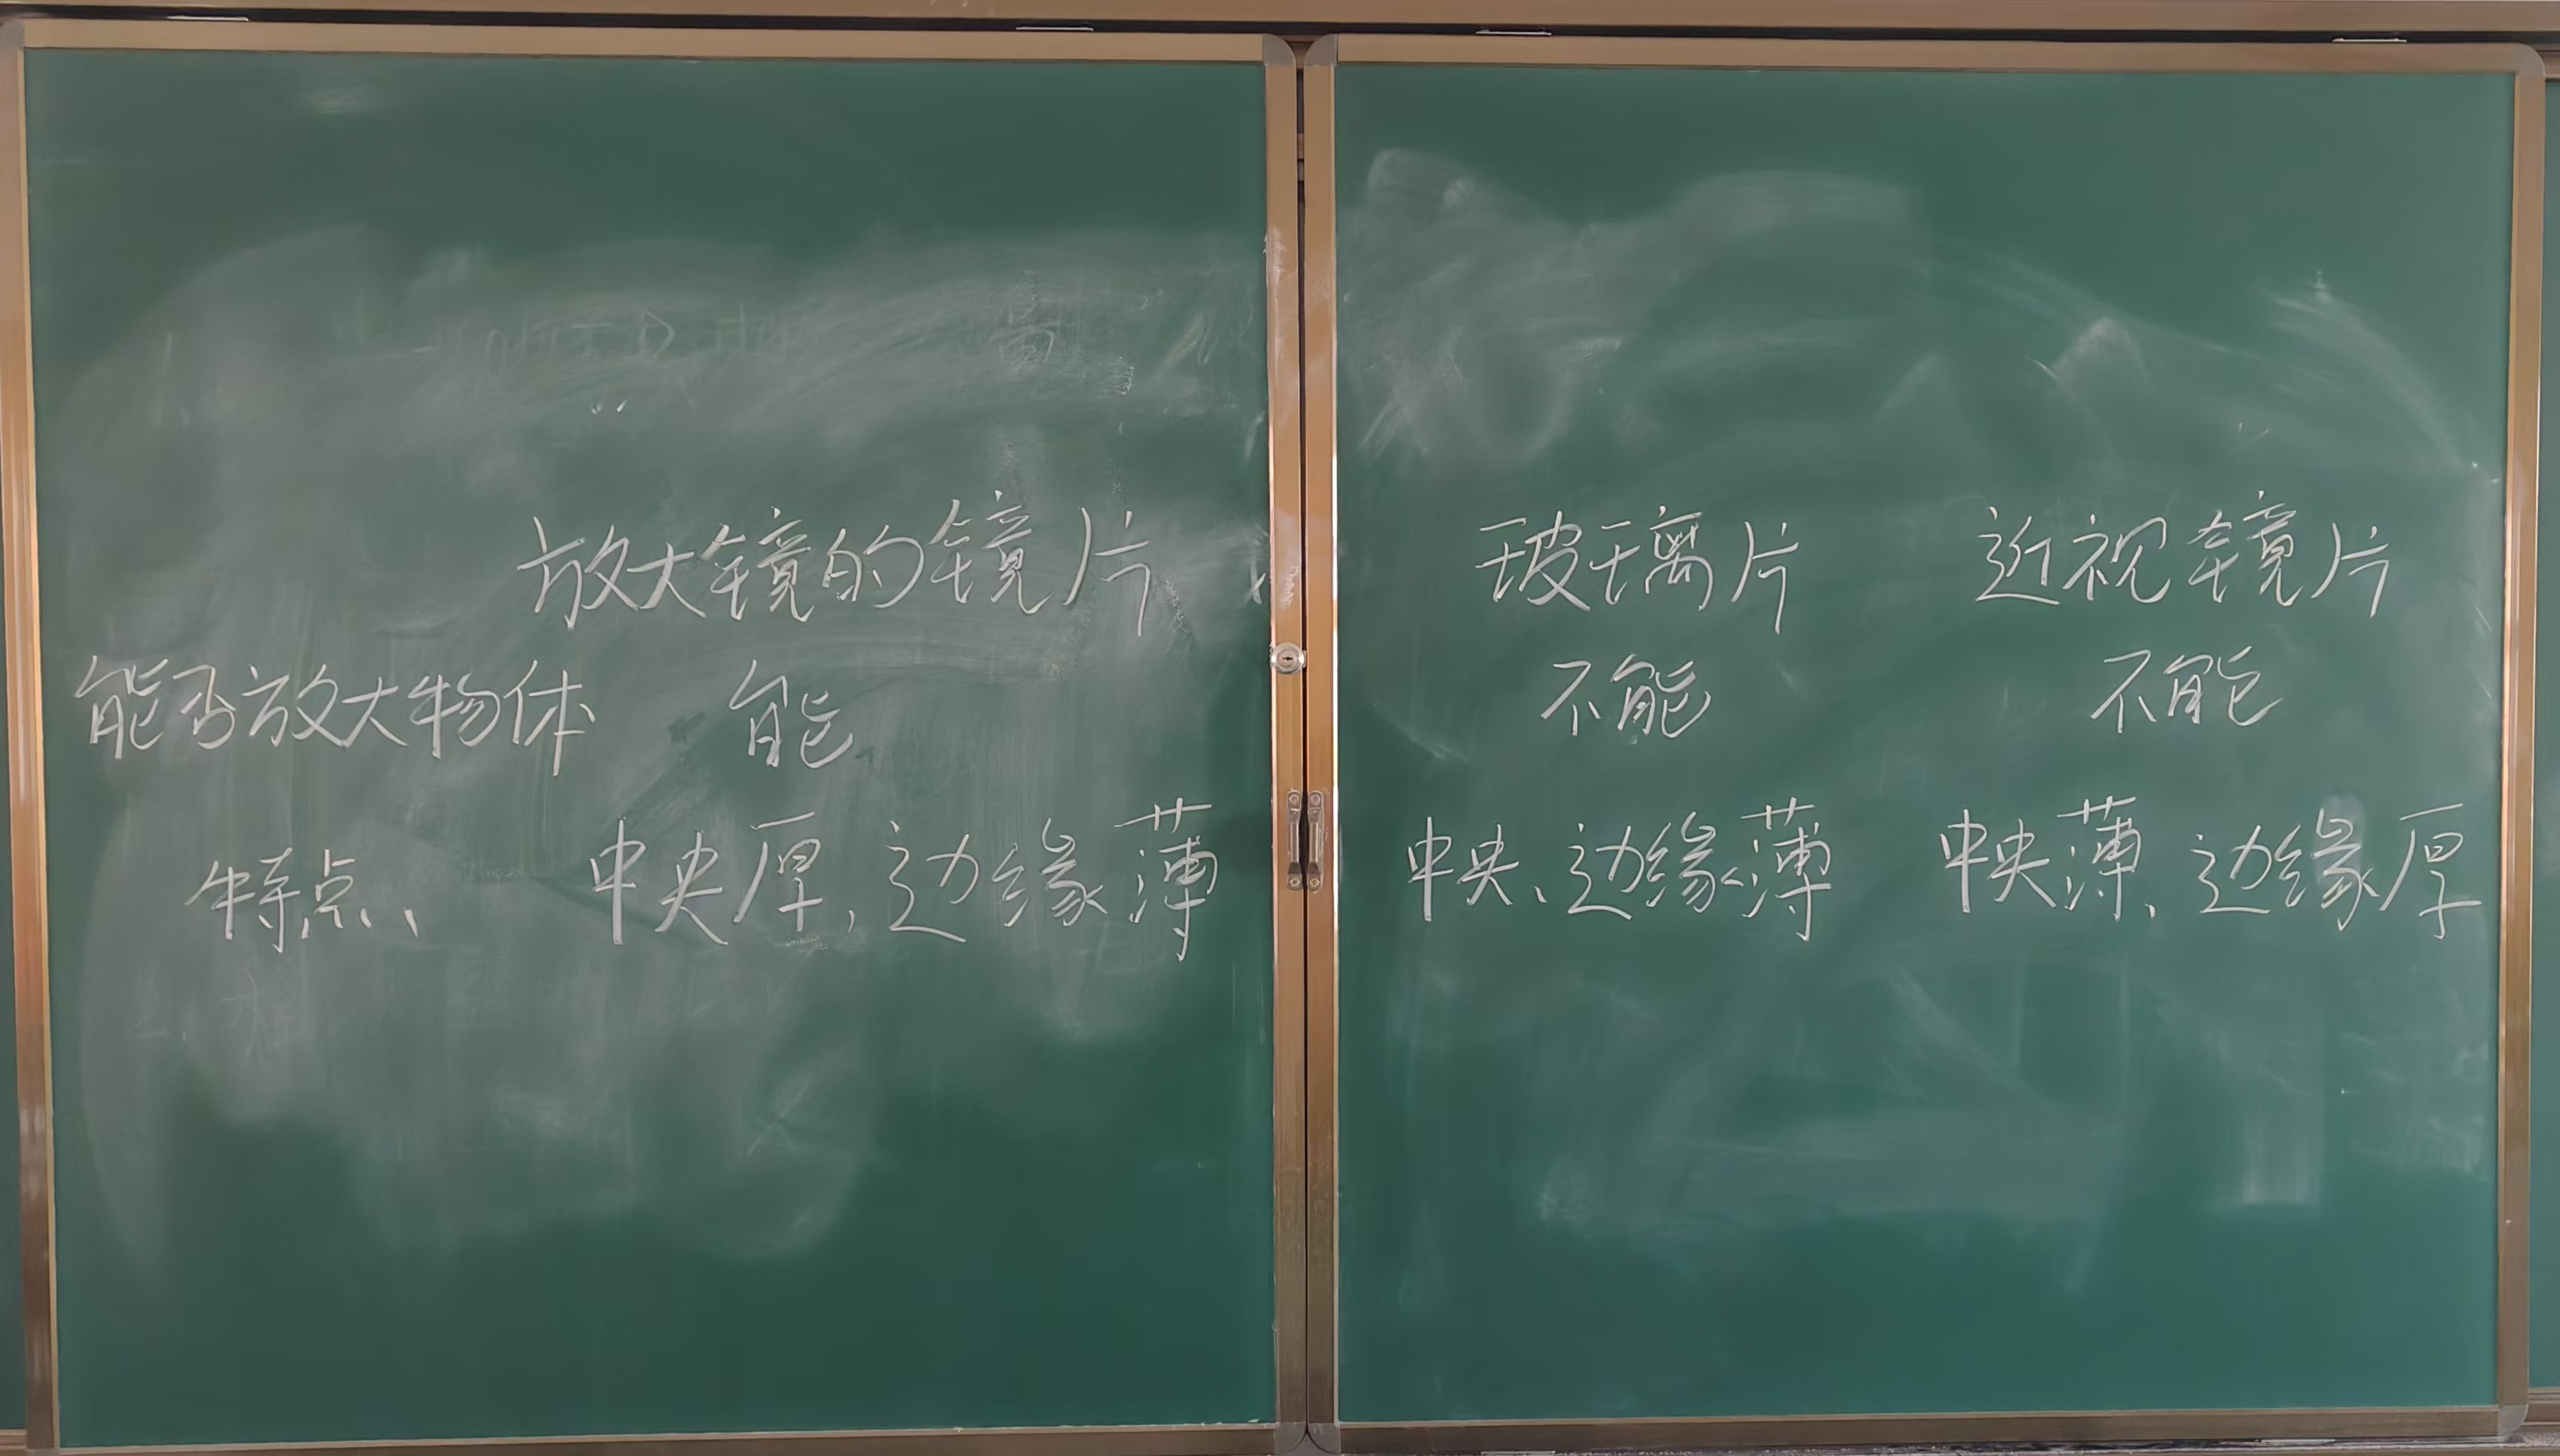 放大镜的镜片 玻璃片 近视镜片
能否放大物体 能 不能 不能
特点 中央厚,边缘薄 中央、边缘薄 中央薄,边缘厚